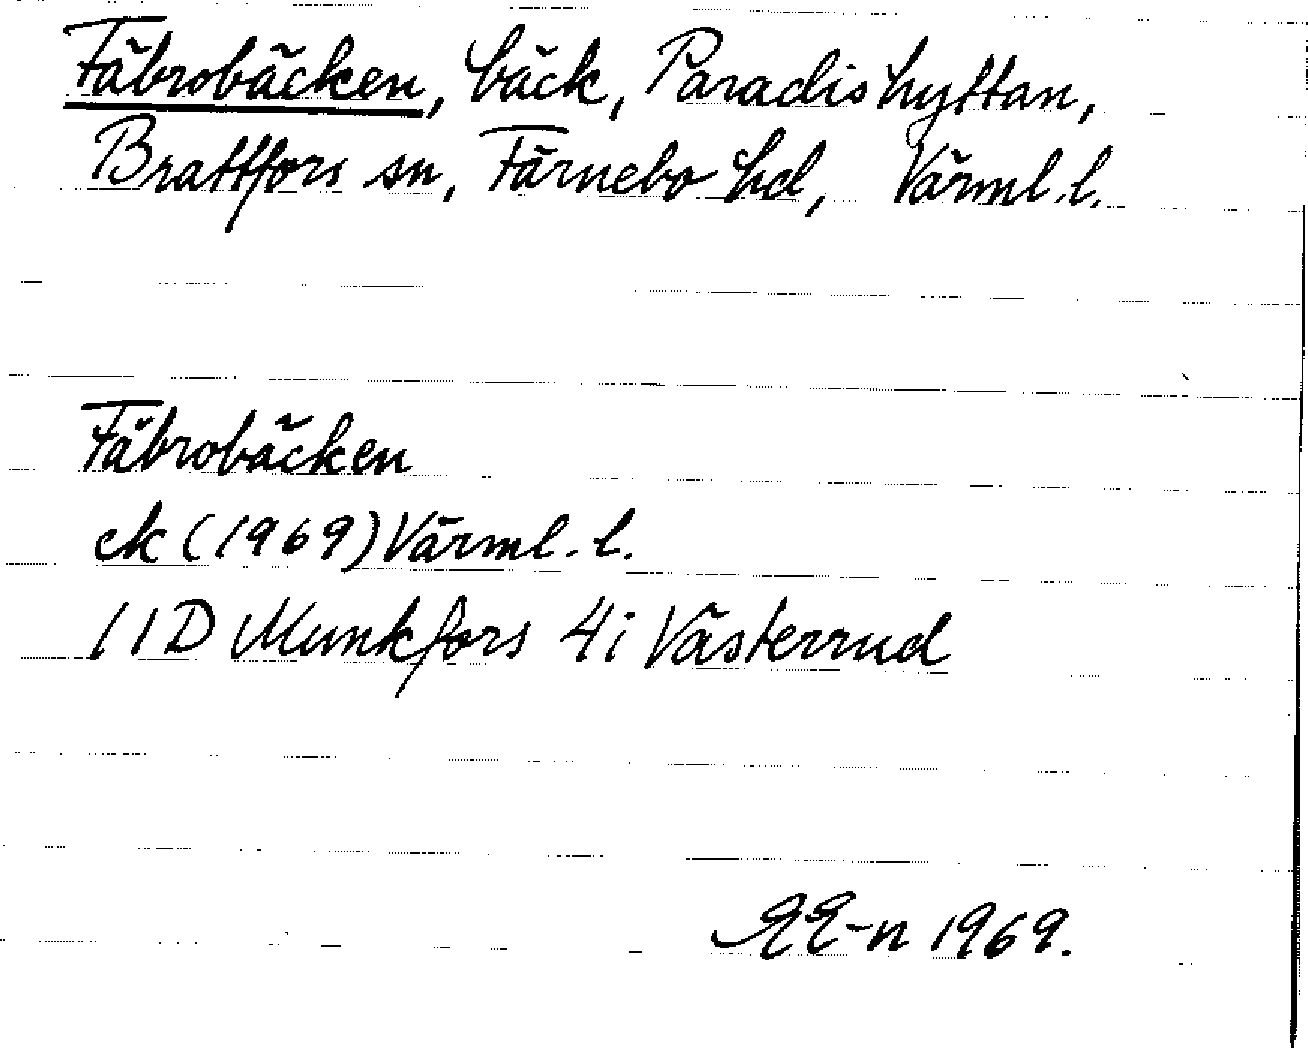 Fäbrobäcken, bäck, Paradishyttan,
Brattfors sn, Färnebo hd, Värml.l.
Fäbrobäcken
ek (1969) Värml.l.
11D Munkfors 4i Västerrud
EE-n 1969.